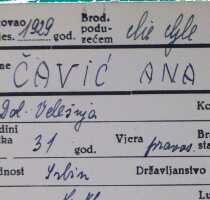 ovao
jes. 1929 god. Brod. podu-
zećem
ne ČAVIĆ ANA
Dol. Velešnja Ko
dini
ka 31 god. Vjera pravos. Br
sta
dnost Srbin Državljanstvo